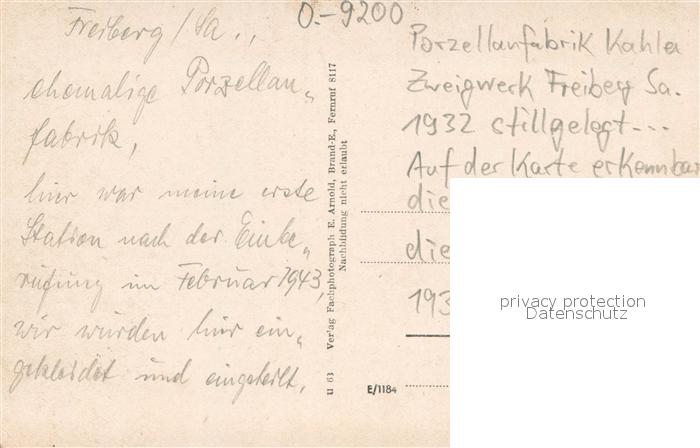 Freiberg / Sa.,
ehemalige Porzellan„
fabrik,
hier war meine erste
Station nach der Einbe„
rufung im Februar 1943,
wir wurden hier ein„
gekleidet und eingeteilt.
O.-9200
Porzellanfabrik Kahla
Zweigwerk Freiberg Sa.
1932 stillgelegt---
Auf der Karte erkennbar
die
die
193
u 63 Verlag Fachphotograph E. Arnold, Brand-E., Fernruf 8117
Nachbildung nicht erlaubt
E/1184
privacy protection
Datenschutz